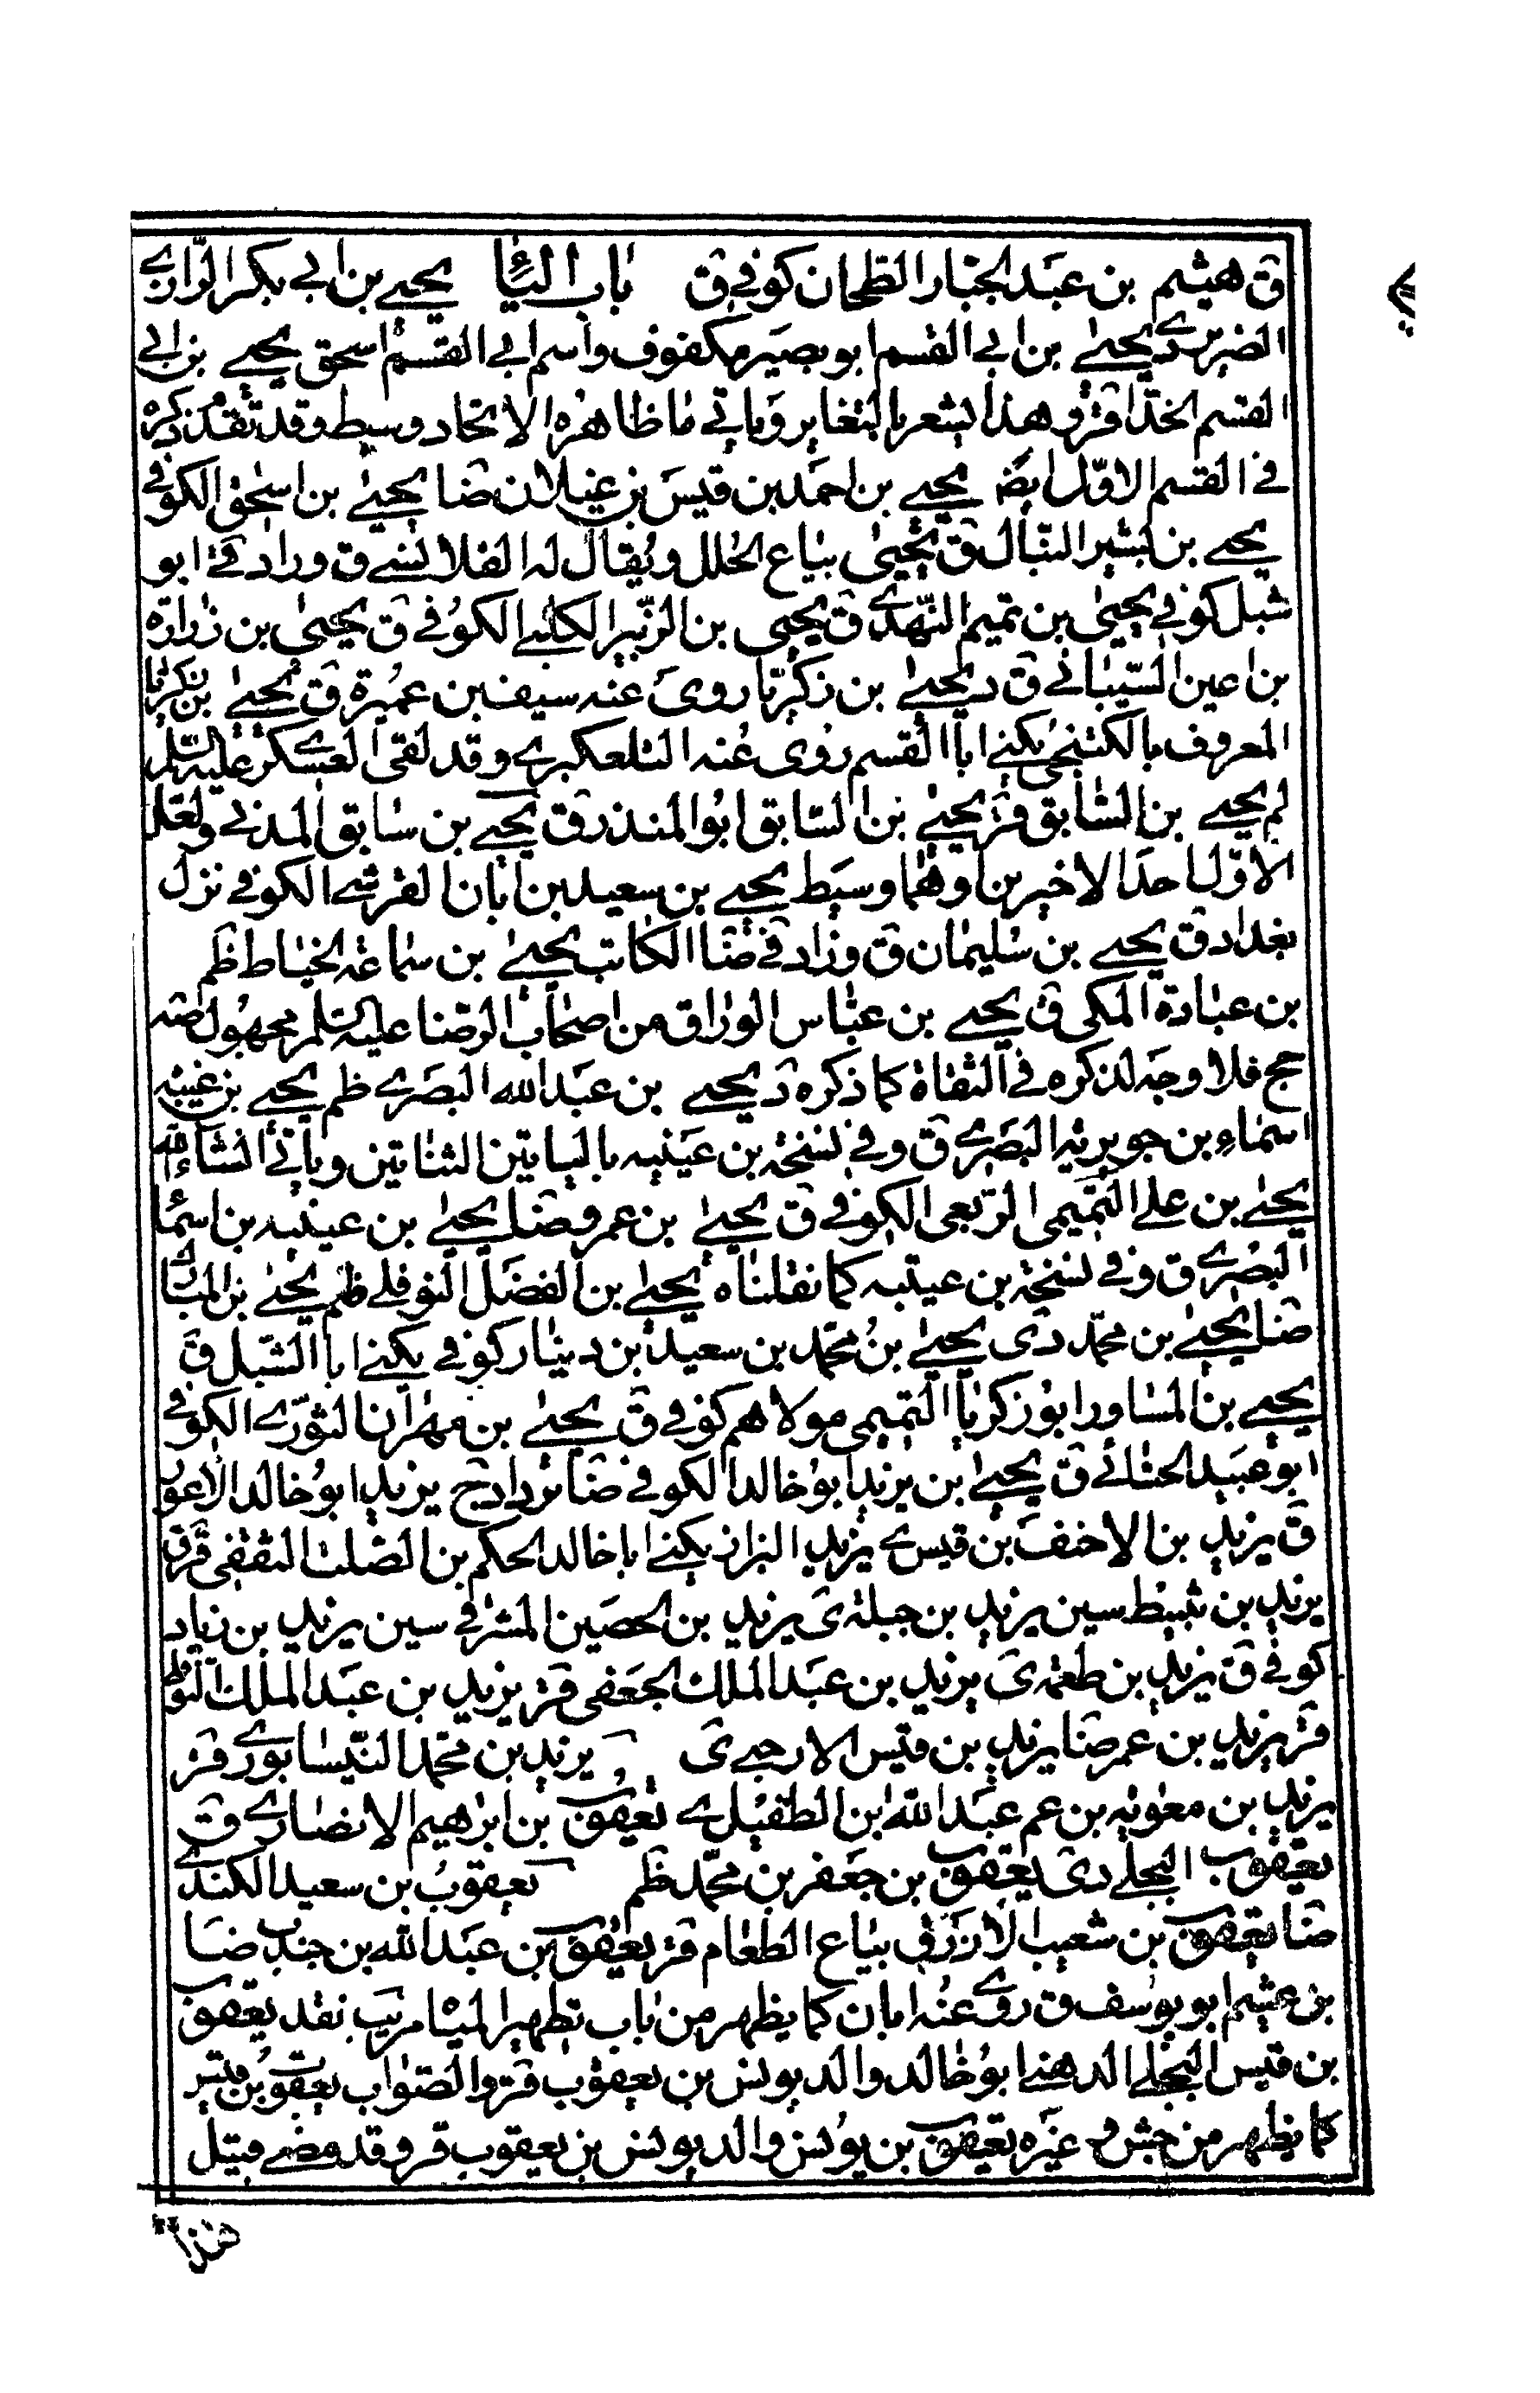 ق هيثم بن عبد الجبار الطحان كوفي ق باب الياء يحيى بن ابي بكر الرازي
الضرير دي يحيى بن ابي القسم ابو بصير مكفوف واسم ابي القسم اسحق يحيى بن ابي
القسم الحذاء قر و هذا يشعر بالتغاير وياتي ما ظاهره الاتحاد وسيط وقد تقدم ذكره
في القسم الاوّل ايضا يحيى بن احمد بن قيس بن غيلان ضا يحيى بن اسحق الكوفي
يحيى بن بشير النبال ق يحيى بياع الحلل ويقال له القلانسي ق وزاد في ابو
شبل كوفي يحيى بن تميم النهدي ق يحيى بن الزبير الكلبي الكوفي ق يحيى بن زرارة
بن اعين الشيباني ق د يحيى بن زكريا روى عنه سيف بن عميرة ق يحيى بن زكريا
المعروف بالكتنجي يكنى ابا القسم روى عنه التلعكبري وقد لقى العسكري عليه السلم
لم يحيى بن السابق قر يحيى بن السابق ابو المنذر ق يحيى بن سابق المدني ولعل
الاوّل احد الاخيرين وهما وسيط يحيى بن سعيد بن ابان القرشي الكوفي نزل
بغداد ق يحيى بن سليمان ق وزاد في ضا الكاتب يحيى بن سماعة الخياط ظم
بن عبادة المكي ق يحيى بن عباس الوراق من اصحاب الرضا عليه السلم مجهول صه
جج فلا وجه لذكره في الثقاة كما ذكره د يحيى بن عبد الله البصري ظم يحيى بن عتيبة
اسماء بن جويرية البصري ق وفي نسخة بن عيينه باليايين الثنايتين وياتي انشاء الله
يحيى بن علي التميمي الربعي الكوفي ق يحيى بن عمرو ضا يحيى بن عيينه بن اسما
البصري ق و في نسخة بن عيتبه كما نقلناه يحيى بن الفضل النوفلي ظم يحيى بن المبارك
ضا يحيى بن محمد دى يحيى بن محمد بن سعيد بن دينار كوفي يكنى ابا الشبل ق
يحيى بن المساور ابو زكريا التميمي مولاهم كوفي ق يحيى بن مهران الثوري الكوفي
ابو عبيد الحنائي ق يحيى بن يزيد ابو خالد الكوفي ضا يزداد ج يزيد ابو خالد الاعور
ق يزيد بن الاحنف بن قيس ي يزيد البزاز يكنى ابا خالد الحكم بن الصلت الثقفي قر ق
يزيد بن ثبيط سين يزيد بن جبلة ى يزيد بن الحصين المشرفي سين يزيد بن زياد
كوفي ق يزيد بن طعمة ى يزيد بن عبد الملك الجعفي قر يزيد بن عبد الملك النوفلي
قر يزيد بن عمر ضا يزيد بن قيس الارحبي ى يزيد بن محمد النيسابوري قر
يزيد بن معوية بن عم عبد الله ابن الطفيل ي يعقوب بن ابرهيم الانصاري ق
يعقوب البجلي دى يعقوب بن جعفر بن محمد ظم يعقوب بن سعيد الكندي
ضا يعقوب بن شعيب الازرق بياع الطعام قر يعقوب بن عبد الله بن جندب ضا
بن عثيم ابو يوسف ق روى عنه ابان كما يظهر من باب تطهير المياه من يب نقد يعقوب
بن قيس البجلي الدهني ابو خالد والد يونس بن يعقوب قر والصواب يعقوب بن قيس
كما يظهر من جش و غيره يعقوب بن يونس والد يونس بن يعقوب قر وقد مضى قبيل
هذا